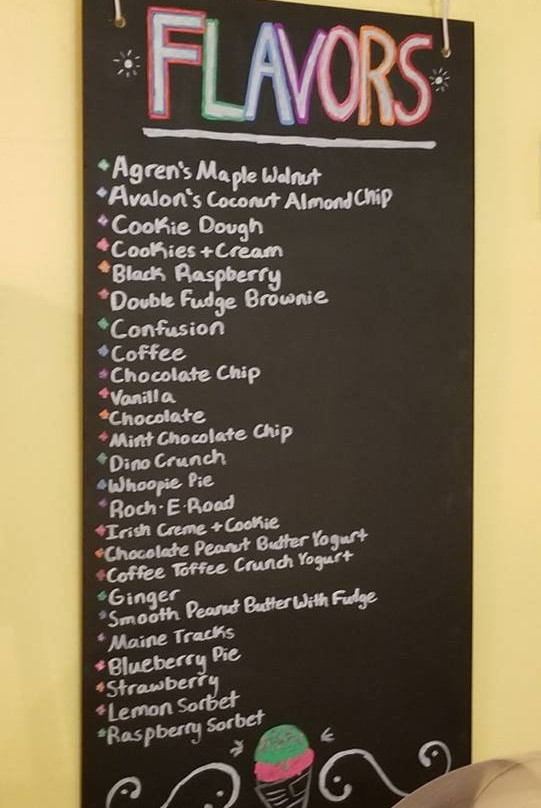 FLAVORS
Agren's Maple Walnut
Avalon's Coconut Almond Chip
Cookie Dough
Cookies + Cream
Black Raspberry
Double Fudge Brownie
Confusion
Coffee
Chocolate Chip
Vanilla
Chocolate
Mint Chocolate Chip
Dino Crunch
Whoopie Pie
Roch·E·Road
Irish Creme + Cookie
Chocolate Peanut Butter Yogurt
Coffee Toffee Crunch Yogurt
Ginger
Smooth Peanut Butter With Fudge
Maine Tracks
Blueberry Pie
Strawberry
Lemon Sorbet
Raspberry Sorbet